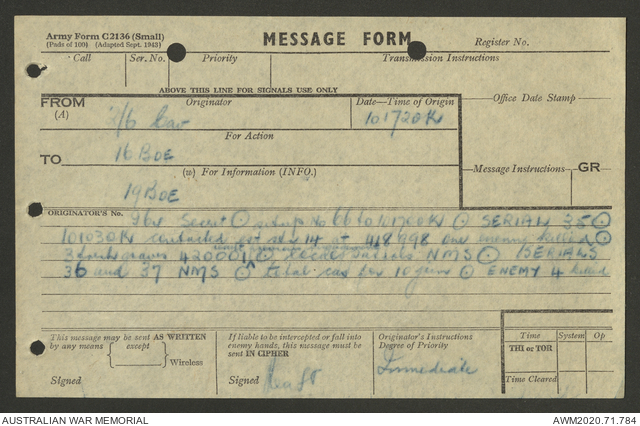 Army Form C2136 (Small)
(Pads of 100) (Adapted Sept. 1943)
MESSAGE FORM
Register No.
Call
Ser. No.
Priority
Transmission Instructions
ABOVE THIS LINE FOR SIGNALS USE ONLY
FROM
(A)
Originator
Date—Time of Origin
Office Date Stamp
Cav
101720K
For Action
TO
16 BDE
(w) For Information (INFO.)
Message Instructions
GR
19 BDE
ORIGINATOR'S No.
Secret sitrep No 66 to 101700K SERIAL 35
101030K contacted 14 418998 one enemy killed
3 fresh graves 420001 NMS SERIALS
36 and 37 NMS total cas for 10 ENEMY 4 killed
This message may be sent AS WRITTEN
by any means
except
Wireless
Signed
If liable to be intercepted or fall into
enemy hands, this message must be
sent IN CIPHER
Signed
Originator's Instructions
Degree of Priority
Immediate
Time
System
Op
THI or TOR
Time Cleared
AUSTRALIAN WAR MEMORIAL
AWM2020.71.784